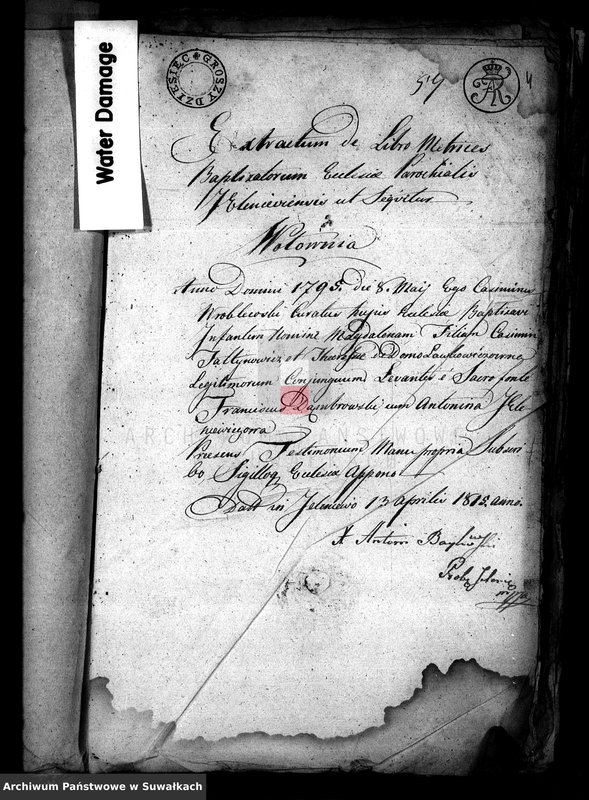 Water Damage
DZIESIĘC GROSZY
59
Extractum de Libro Metrices
Baptizatorum Ecclesiæ Parochialis
Jelenieviensis ut Seqvitur
Wołownia
Anno Domini 1795. die 8. Maij Ego Casimirus
Wroblewski Curatus hujus Ecclesiæ Baptisavi
Infantem Nomine Magdalenam Filiam Casimiri
et Theresæ de Domo
Legitimorum Conjugum Levantes è Sacro fonte
Franciscus Dąmbrowski cum Antonina Jele
niewiczowa
Præsens Testimonium Manu propria Subscri
bo, Sigilloq Ecclesiæ Appono
Datt in Jeleniewo 13 Aprilis 1815. anno.
X Antoni
Prob
mpp
Archiwum Państwowe w Suwałkach